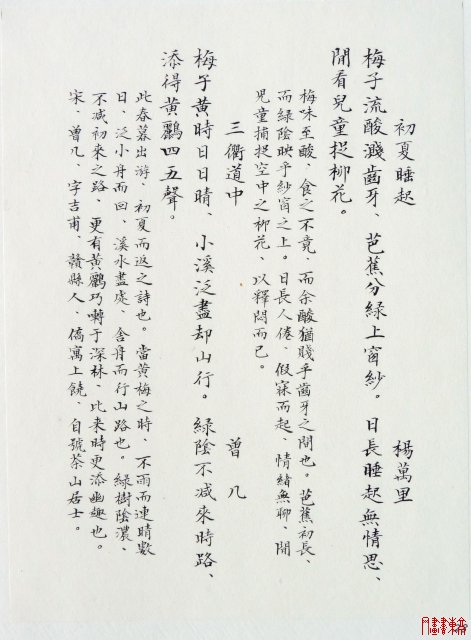 初夏睡起　楊萬里
梅子流酸濺齒牙、芭蕉分綠上窗紗。日長睡起無情思、
閒看兒童捉柳花。
梅味至酸、食之不竟　而余酸猶賤乎齒牙之間也。芭蕉初長、
而綠陰映乎紗窗之上。日長人倦、假寐而起、情緒無聊、閒
兒童捕捉空中之柳花、以釋悶而已。
三衢道中　曾几
梅子黃時日日晴、小溪泛盡却山行。綠陰不減來時路、
添得黃鸝四五聲。
此春暮出游、初夏而返之詩也。當黃梅之時、不雨而連晴數
日、泛小舟而回、溪水盡處、舍舟而行山路也。綠樹陰濃、
不减初來之路、更有黃鸝巧囀于深林、比来時更添幽趣也。
宋、曾几、字吉甫、贛縣人、僑寓上饒、自號茶山居士。